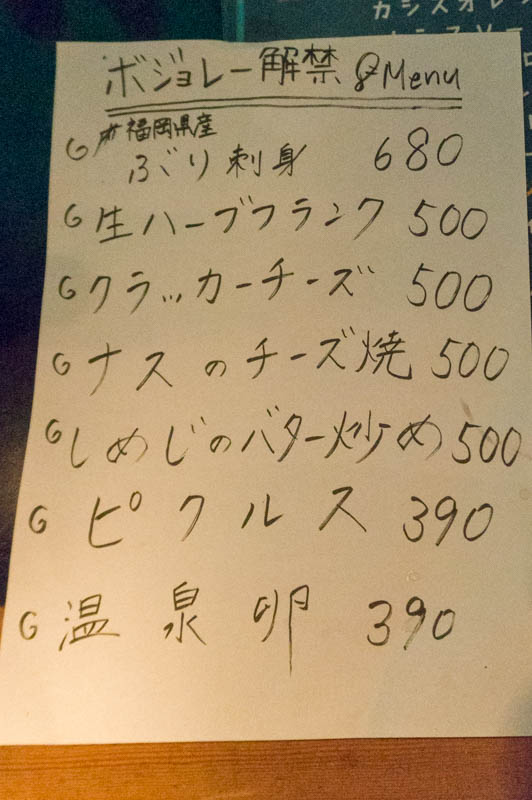 カシスオレ
ボジョレー解禁 & Menu
福岡県産
ぶり刺身 680
生ハーブフランク 500
クラッカーチーズ 500
ナスのチーズ焼 500
しめじのバター炒め 500
ピクルス 390
温泉卵 390